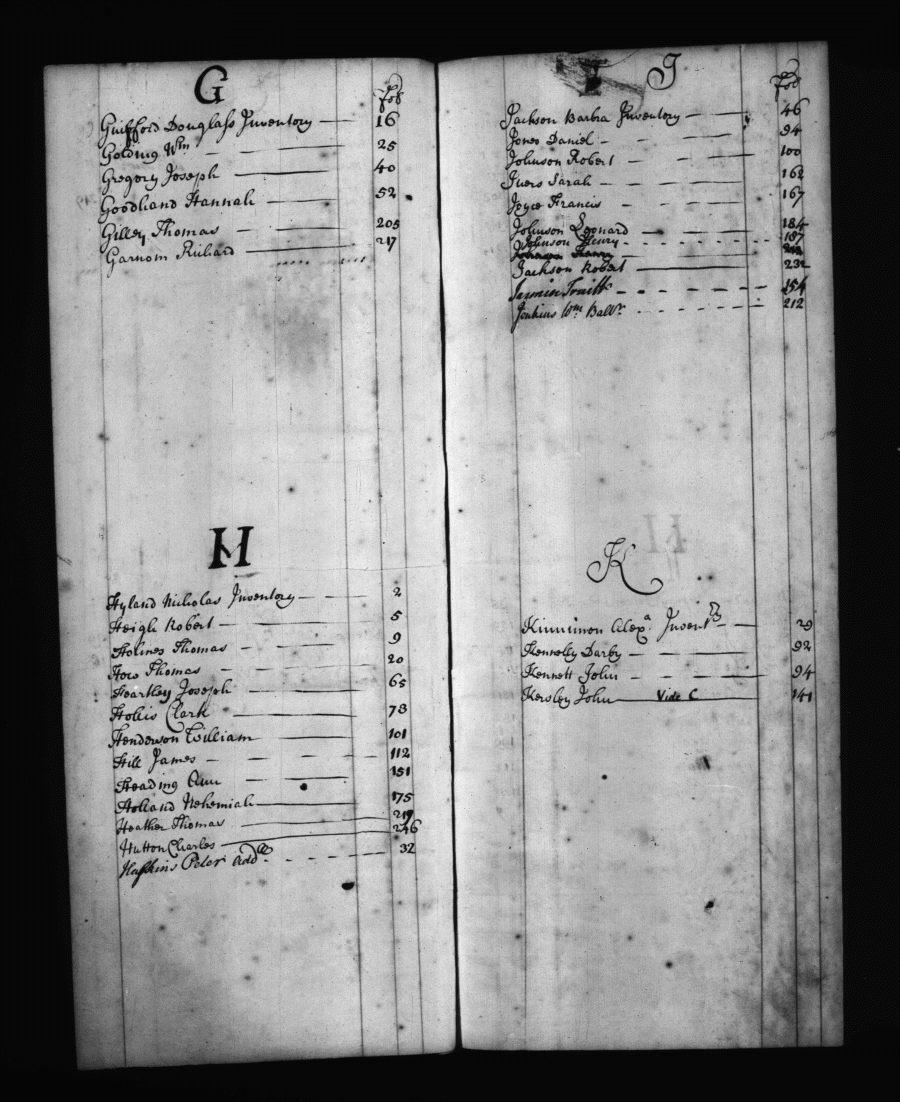 G
fol
Guifford Douglass Inventory 16
Golding Wm 25
Gregory Joseph 40
Goodhand Hannah 52
Gilley Thomas 205
Garnom Richard 217
H
Hyland Nicholas Inventory 2
Heigh Robert 5
Holmes Thomas 9
How Thomas 20
Heartley Joseph 65
Hollis Clark 78
Henderson William 101
Hill James 112
Heading Ann 151
Holland Nehemiah 175
Heather Thomas
Hutton Charles 246
Haskins Peter add 32
I J
fol
Jackson Barba Inventory 46
Jones Daniel 94
Johnson Robert 100
Ivers Sarah 162
Joyce Francis 167
Johnson Leonard 184
Johnson Henry 187
Jackson Robert 232
154
Jenkins Wm Ballr 212
K
Kinnimon Alexa Invent 29
Kenneley Darby 92
Kennett John 94
Kersley John Vide C 141